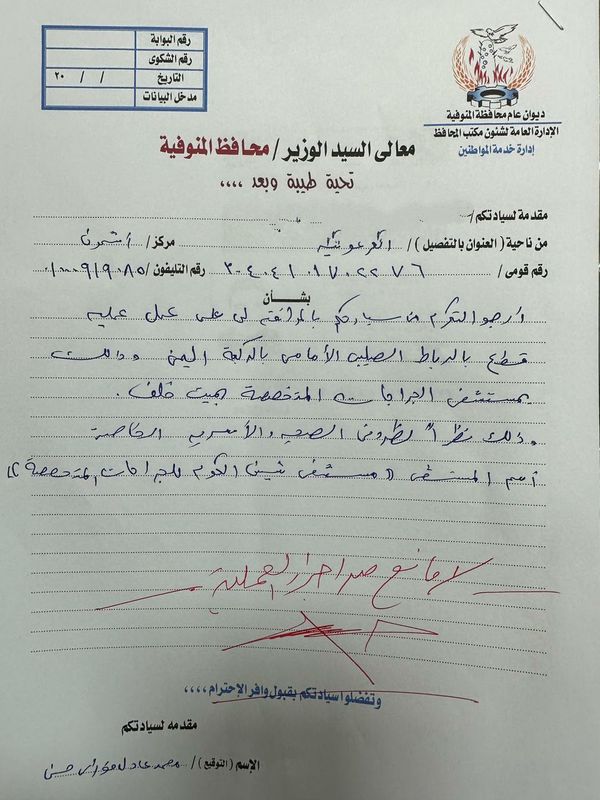 رقم البوابة
رقم الشكوى
التاريخ / / ٢٠
مدخل البيانات
ديوان عام محافظة المنوفية
الإدارة العامة لشئون مكتب المحافظ
إدارة خدمة المواطنين
معالى السيد الوزير / محافظ المنوفية
تحية طيبة وبعد ,,,,
مقدمة لسيادتكم /
من ناحية (العنوان بالتفصيل) / الفرعونية مركز / أشمون
رقم قومى / ٣٠٤٠٤١٠١٧٠٢٢٧٦ رقم التليفون /
بشأن
أرجو التكرم من سيادتكم بالموافقة لى على عمل عمليه
قطع بالرباط الصليبى الأمامى بالركبة اليمنى وذالك
بمستشفى الجراحات المتخصصة بميت خلف.
وذلك نظراً لظروفى الصحيه والأسريه الخاصة
أسم المستشفى (( مستشفى شبين الكوم للجراحات المتخصصة ))
لا مانع من اجراء العملية
وتفضلوا سيادتكم بقبول وافر الإحترام ,,,,
مقدمه لسيادتكم
الإسم (التوقيع) / محمد عادل حسن